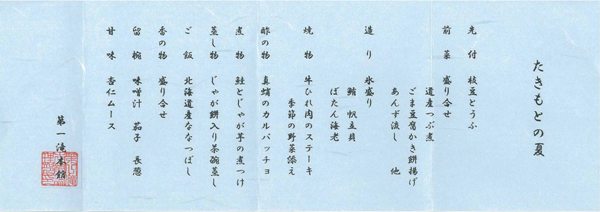 たきもとの夏
先付 枝豆とうふ
前菜 盛り合せ
道産つぶ煮
ごま豆腐かき餅揚げ
あんず流し 他
造り 氷盛り
鮪 帆立貝
ぼたん海老
焼物 牛ひれ肉のステーキ
季節の野菜添え
酢の物 真蛸のカルパッチョ
煮物 鮭とじゃが芋の煮つけ
蒸し物 じゃが餅入り茶碗蒸し
ご飯 北海道産ななつぼし
香の物 盛り合せ
留椀 味噌汁 茄子 長葱
甘味 杏仁ムース
第一滝本館